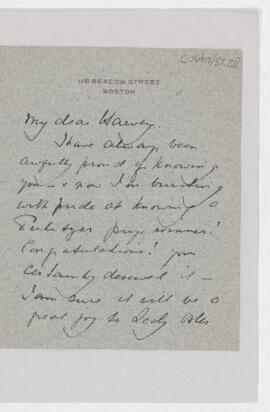 CUSH/57.28
118 BEACON STREET
BOSTON
My dear Harvey.
I have always been
awfully proud of knowing
you & now I'm bursting
with pride at knowing a
Pulitzer prize winner!
Congratulations! you
certainly deserved it –
I am sure it will be a
great joy to Lady Osler